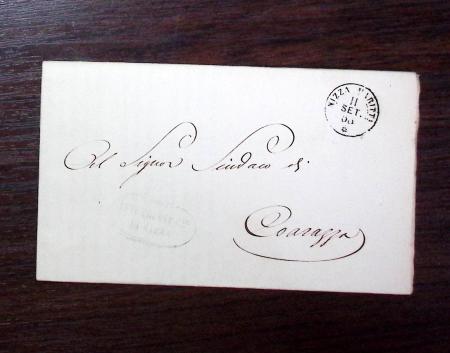 NIZZA MARITT
11
SET.
Al Signor Sindaco di
Coarazza